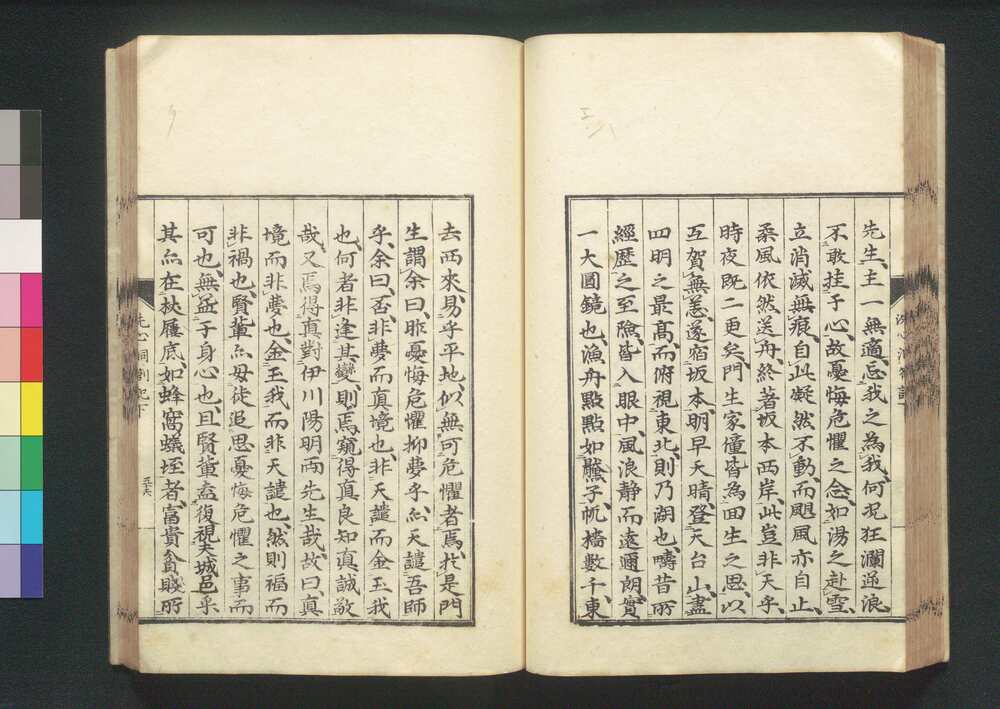 先生、主一無適、忘我之為我、何況狂瀾逆浪、
不敢挂于心、故憂悔危懼之念、如湯之赴雪、
立消滅無痕、自此凝然不動、而颶風亦自止、
柔風依然送舟、終著坂本西岸、此豈非天乎、
時夜既二更矣、門生家僮皆為回生之思、以
互賀無恙、遂宿坂本、明早天晴、登天台山、盡
四明之最高、而俯視東北、則乃湖也、疇昔所
經歷之至險、皆入眼中、風浪静而遠邇朗、實
一大圓鏡也、漁舟點點如黶子、帆檣數千、東
去西來、易乎平地、似無可危懼者焉、於是門
生謂余曰、昨憂悔危懼抑夢乎、尓天譴吾師
乎、余曰、否、非夢而真境也、非天譴而金玉我
也、何者非逢其變、則焉窺得真良知真誠敬
哉、又焉得真對伊川陽明兩先生哉、故曰、真
境而非夢也、金玉我而非天譴也、然則福而
非禍也、賢輩尓毋徒追思憂悔危懼之事而
可也、無益于身心也、且賢輩盍復視夫城邑乎
其尓在於屨底、如蜂窩蟻垤者、富貴貧賤所
洗心洞劄記下
五六